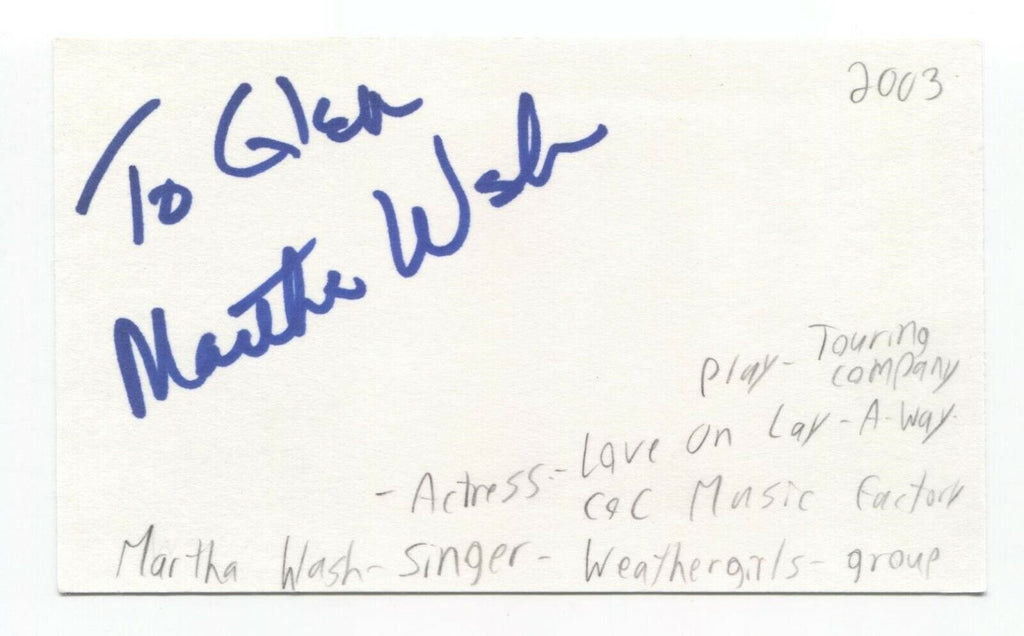 2003
To Glen
Martha Wash
Play- Touring
company
- Actress- Love On Lay-A-Way.
C&C Music Factory
Martha Wash- Singer- Weathergirls- group